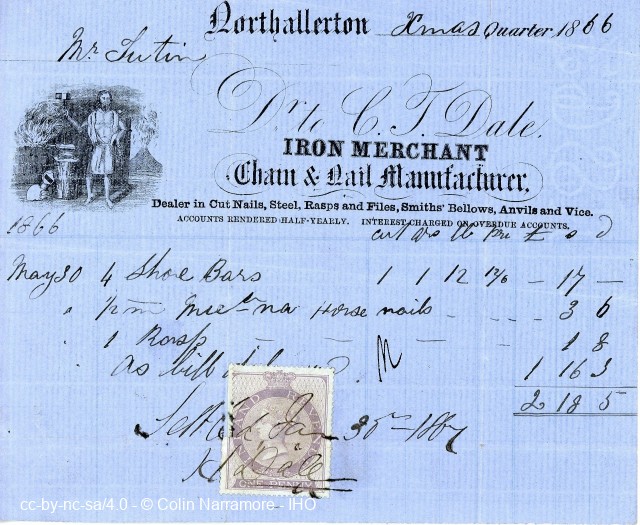 Northallerton Xmas Quarter 1866
Mr
Dr to C. T. Dale.
IRON MERCHANT
Chain & Nail Manufacturer,
Dealer in Cut Nails, Steel, Rasps and Files, Smiths' Bellows, Anvils and Vice.
ACCOUNTS RENDERED HALF-YEARLY. INTEREST CHARGED ON OVERDUE ACCOUNTS.
1866 £ s d
May 30 4 Shoe Bars 1 1 12 - 17 -
Horse nails - - - - 3 6
1 Rasp - - - 1 8
As bill 1 16 3
2 18 5
Settled Jan 1867
Dale
ONE PENNY
cc-by-nc-sa/4.0 - © Colin Narramore - IHO